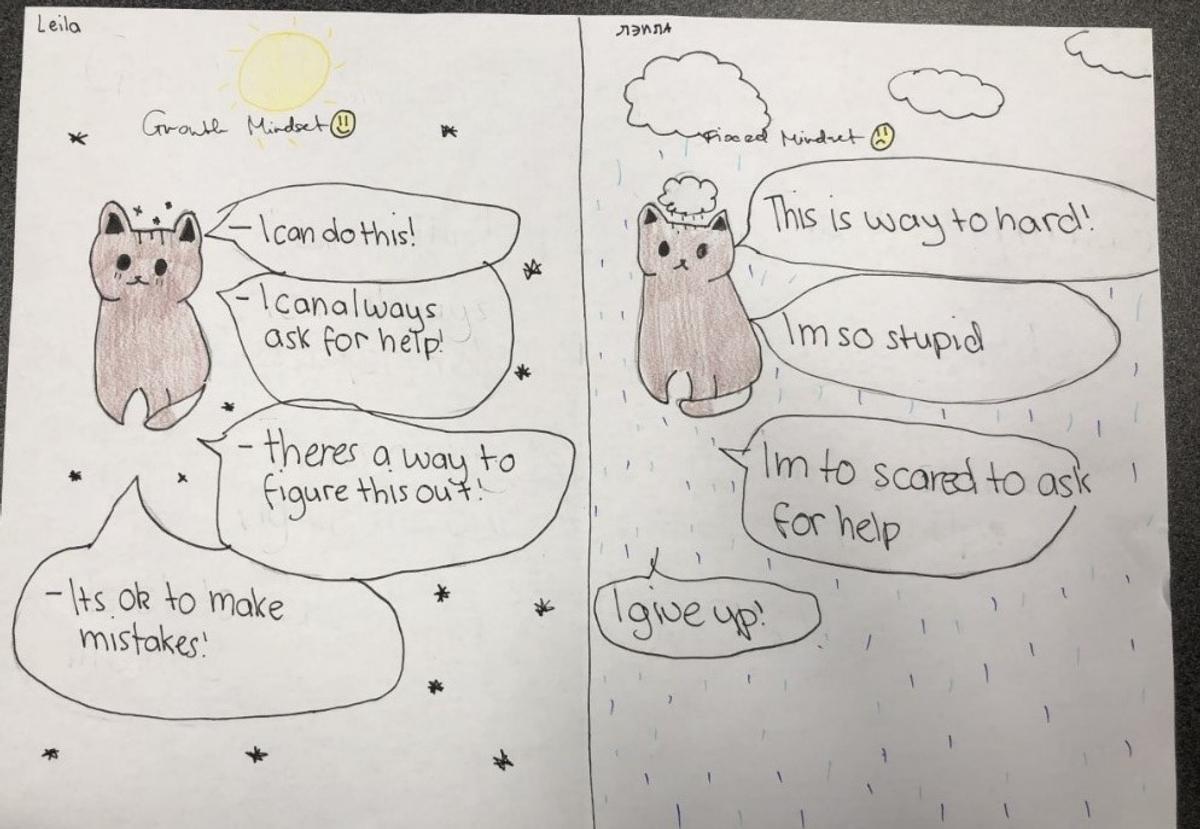 Leila
Growth Mindset
- I can do this!
- I can always
ask for help!
- theres a way to
figure this out!
- Its ok to make
mistakes!
лэпла
Fixed Mindset
This is way to hard!
Im so stupid
Im to scared to ask
for help
I give up!